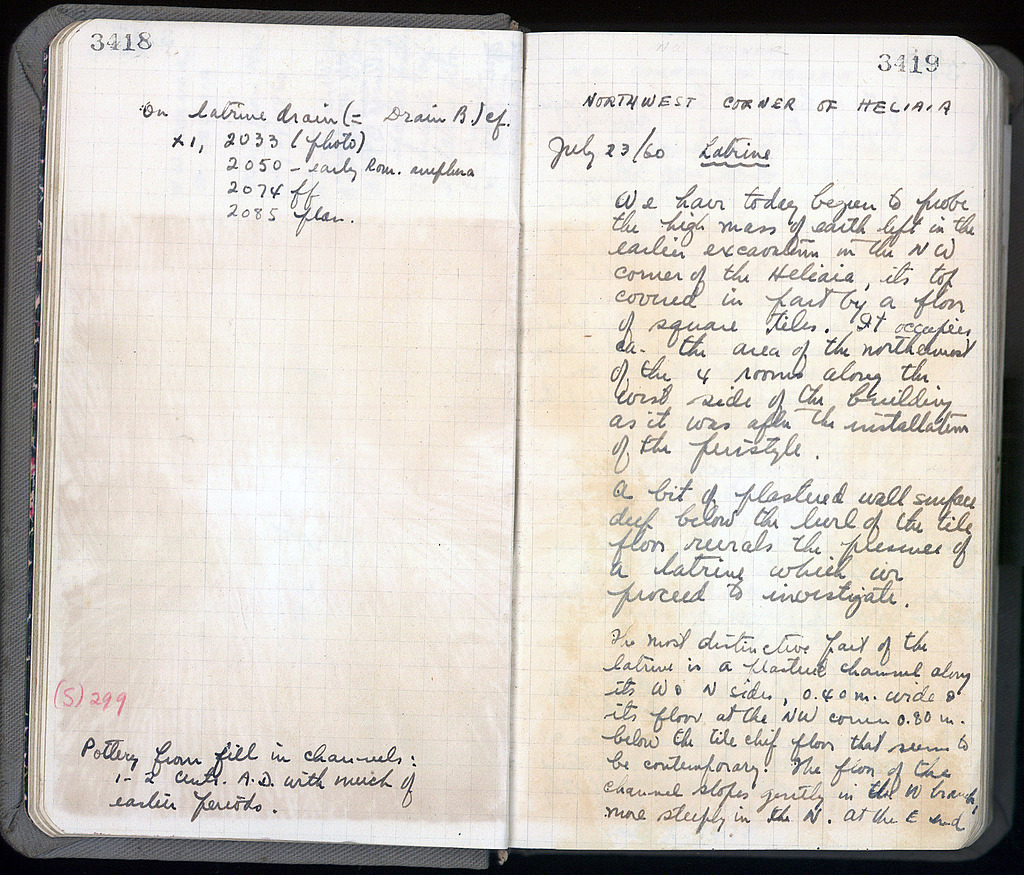 3418
On latrine drain (= Drain B.) cf.
x1, 2033 (photo)
2050 - early Rom. amphora
2074 ff
2085 plan.
(S) 299
Pottery from fill in channels:
1-2 cents. A.D. with much of
earlier periods.
3419
NORTHWEST CORNER OF HELIAIA
July 23/60 Latrine
We have today begun to probe
the high mass of earth left in the
earlier excavation in the NW
corner of the Heliaia, its top
covered in part by a floor
of square tiles. It occupies
ca. the area of the northernmost
of the 4 rooms along the
west side of the building
as it was after the installation
of the peristyle.
A bit of plastered wall surface
deep below the level of the tile
floor reveals the presence of
a latrine which we
proceed to investigate.
The most distinctive part of the
latrine is a plastered channel along
its W & N sides, 0.40 m. wide &
its floor at the NW corner 0.80 m.
below the tile chip floor that seems to
be contemporary. The floor of the
channel slopes gently in the W branch,
more steeply in the N. At the E end